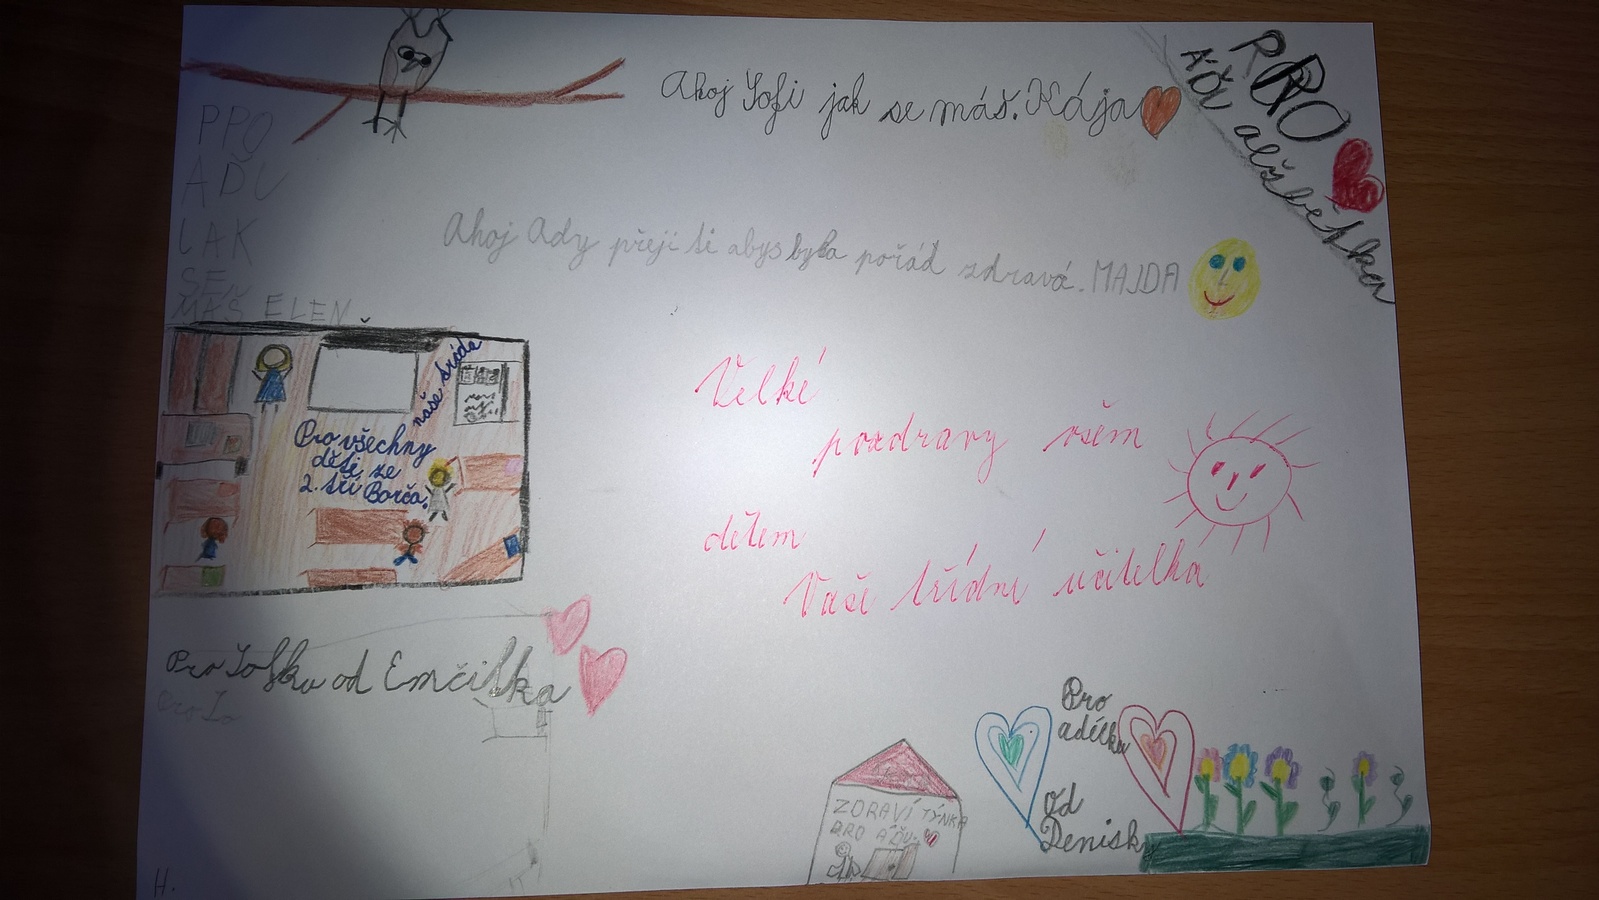 Ahoj Sofi jak se máš. Kája
PRO
ÁĎU
alžbětka
PPO
AĎU
JAK
SE
MÁŠ ELEN
Ahoj Ady přeji ti abys byla pořád zdravá. MAJDA
naše třída
Pro všechny
děti ze
2. tří Borča.
Velké
pozdravy všem
dětem
Vaše třídní učitelka
Pro Sofku od Emčilka
Pro So
Pro
adélku
od
Denisky
ZDRAVÍ TÝNKA
PRO ÁĎU
H.